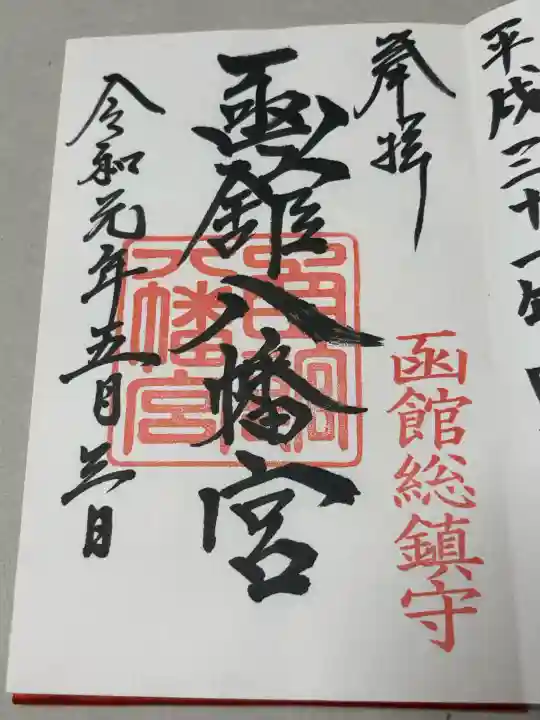 平成三十一年
奉拝
函館総鎮守
函館八幡宮
八幡宮
令和元年五月三日